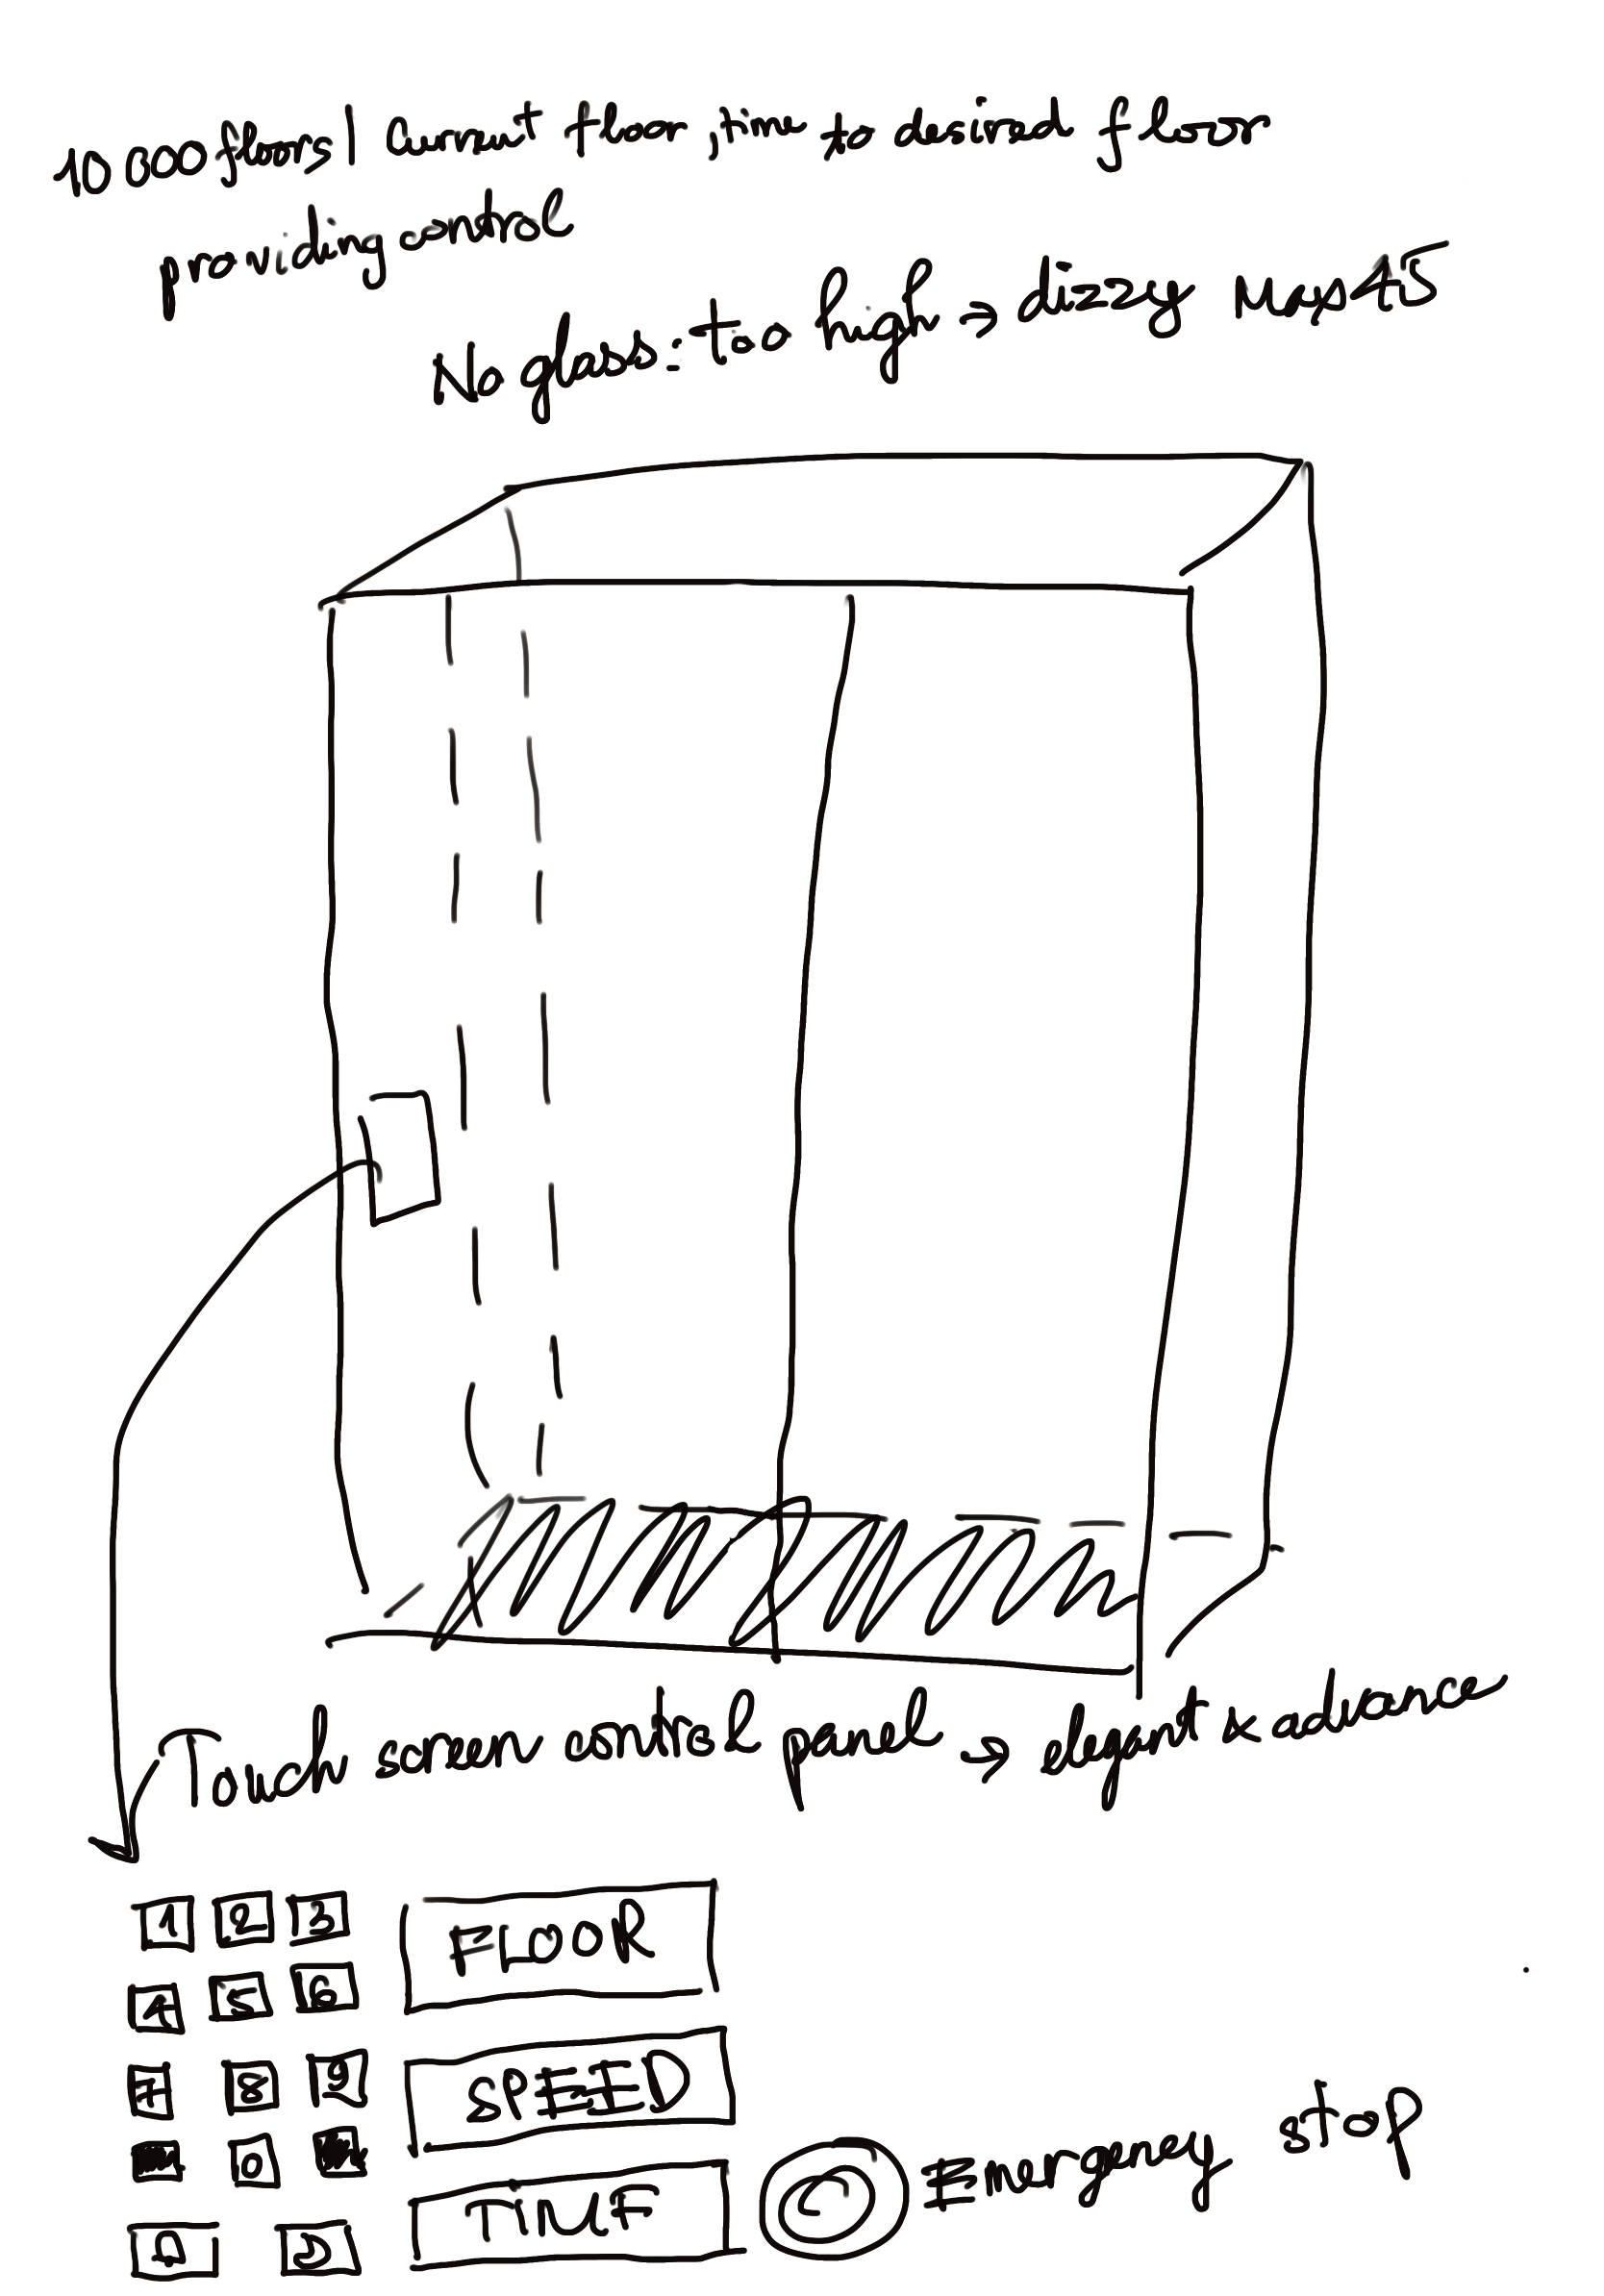 10000 floors | Current floor, time to desired floor
providing control
No glass: too high → dizzy
Touch screen control panel → elegant & advance
1 2 3
FLOOR
4 5 6
7 8 9
SPEED
0
Emergency stop
TIME
D